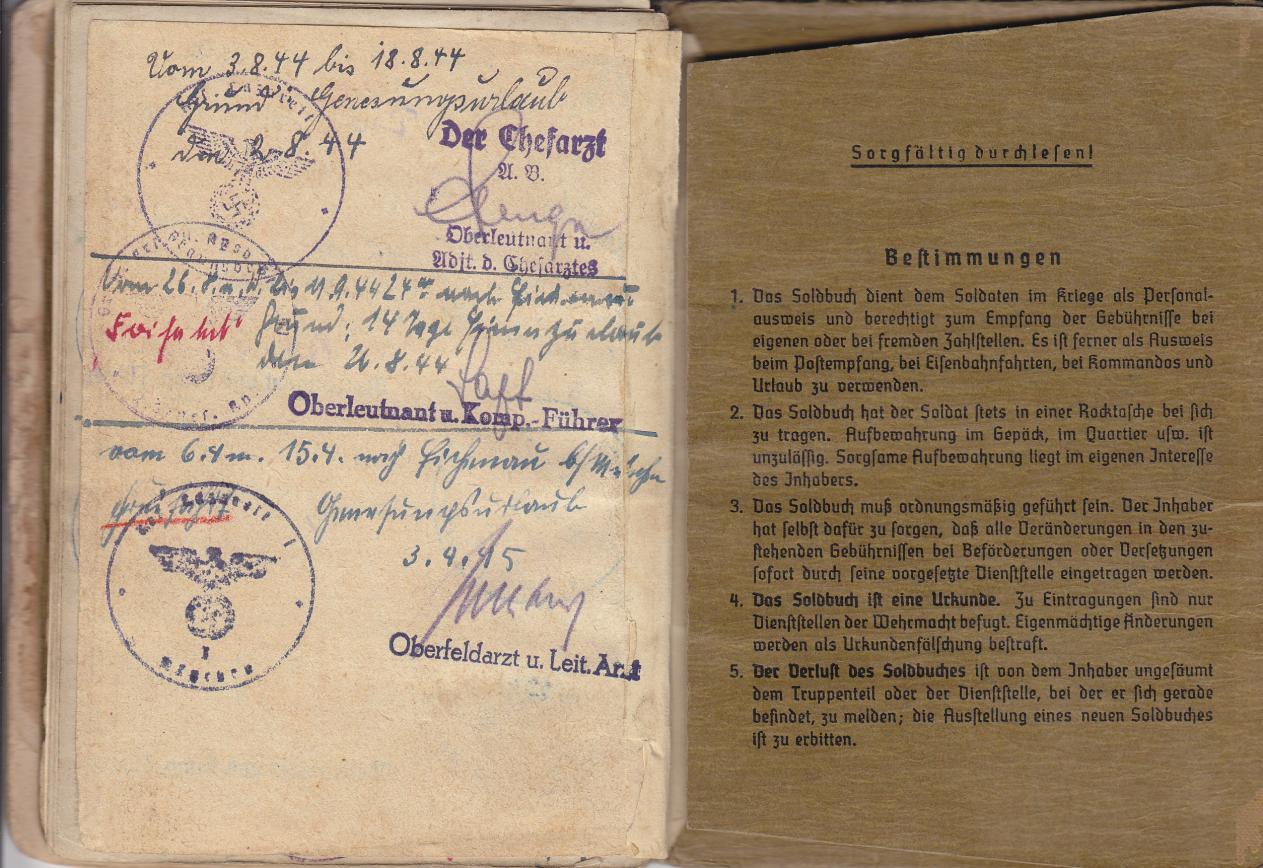 Vom 3.8.44 bis 18.8.44
Grund Genesungsurlaub
den 2.8.44
Der Chefarzt
A. B.
Oberleutnant u.
Adjt. d. Chefarztes
Vom 26.8. 24 nach
Grund: 14 Tage
den 26.8.44
Oberleutnant u. Komp.-Führer
vom 6.4 m. 15.4. nach Eichenau b/München
Genesungsurlaub
3.4.45
Oberfeldarzt u. Leit. Arzt
München
Sorgfältig durchlesen!
Bestimmungen
1. Das Soldbuch dient dem Soldaten im Kriege als Personal-
ausweis und berechtigt zum Empfang der Gebührnisse bei
eigenen oder bei fremden Zahlstellen. Es ist ferner als Ausweis
beim Postempfang, bei Eisenbahnfahrten, bei Kommandos und
Urlaub zu verwenden.
2. Das Soldbuch hat der Soldat stets in einer Rocktasche bei sich
zu tragen. Aufbewahrung im Gepäck, im Quartier usw. ist
unzulässig. Sorgsame Aufbewahrung liegt im eigenen Interesse
des Inhabers.
3. Das Soldbuch muß ordnungsmäßig geführt sein. Der Inhaber
hat selbst dafür zu sorgen, daß alle Veränderungen in den zu-
stehenden Gebührnissen bei Beförderungen oder Versetzungen
sofort durch seine vorgesetzte Dienststelle eingetragen werden.
4. Das Soldbuch ist eine Urkunde. Zu Eintragungen sind nur
Dienststellen der Wehrmacht befugt. Eigenmächtige Änderungen
werden als Urkundenfälschung bestraft.
5. Der Verlust des Soldbuches ist von dem Inhaber ungesäumt
dem Truppenteil oder der Dienststelle, bei der er sich gerade
befindet, zu melden; die Ausstellung eines neuen Soldbuches
ist zu erbitten.